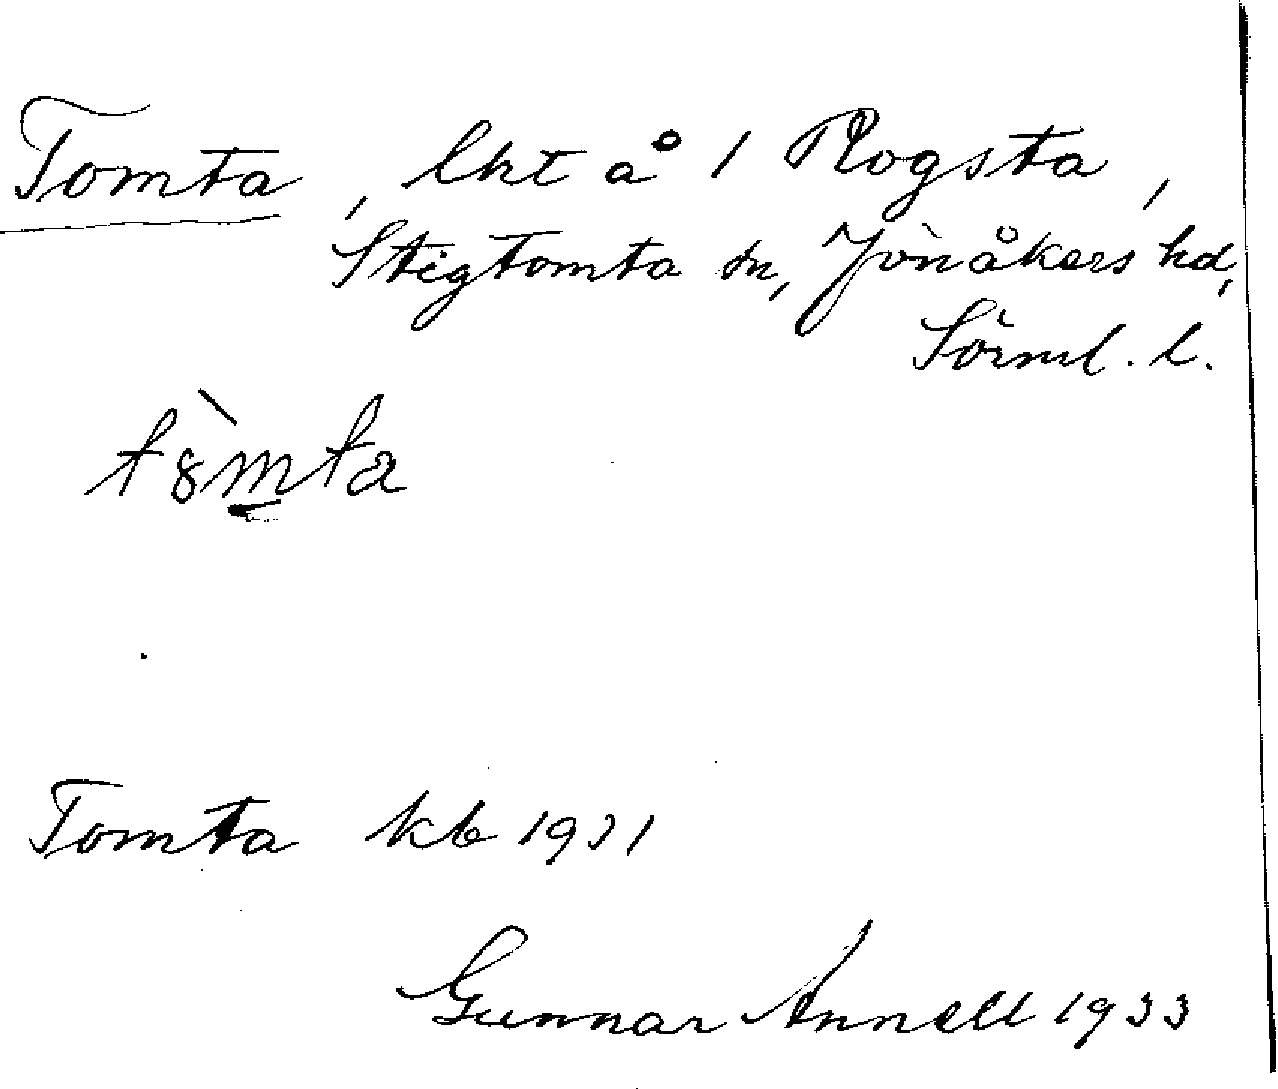 Tomta, lht å 1 Rogsta,
Stigtomta sn, Jönåkers hd,
Sörml. l.
Tomta kb 1931
Gunnar Annell 1933